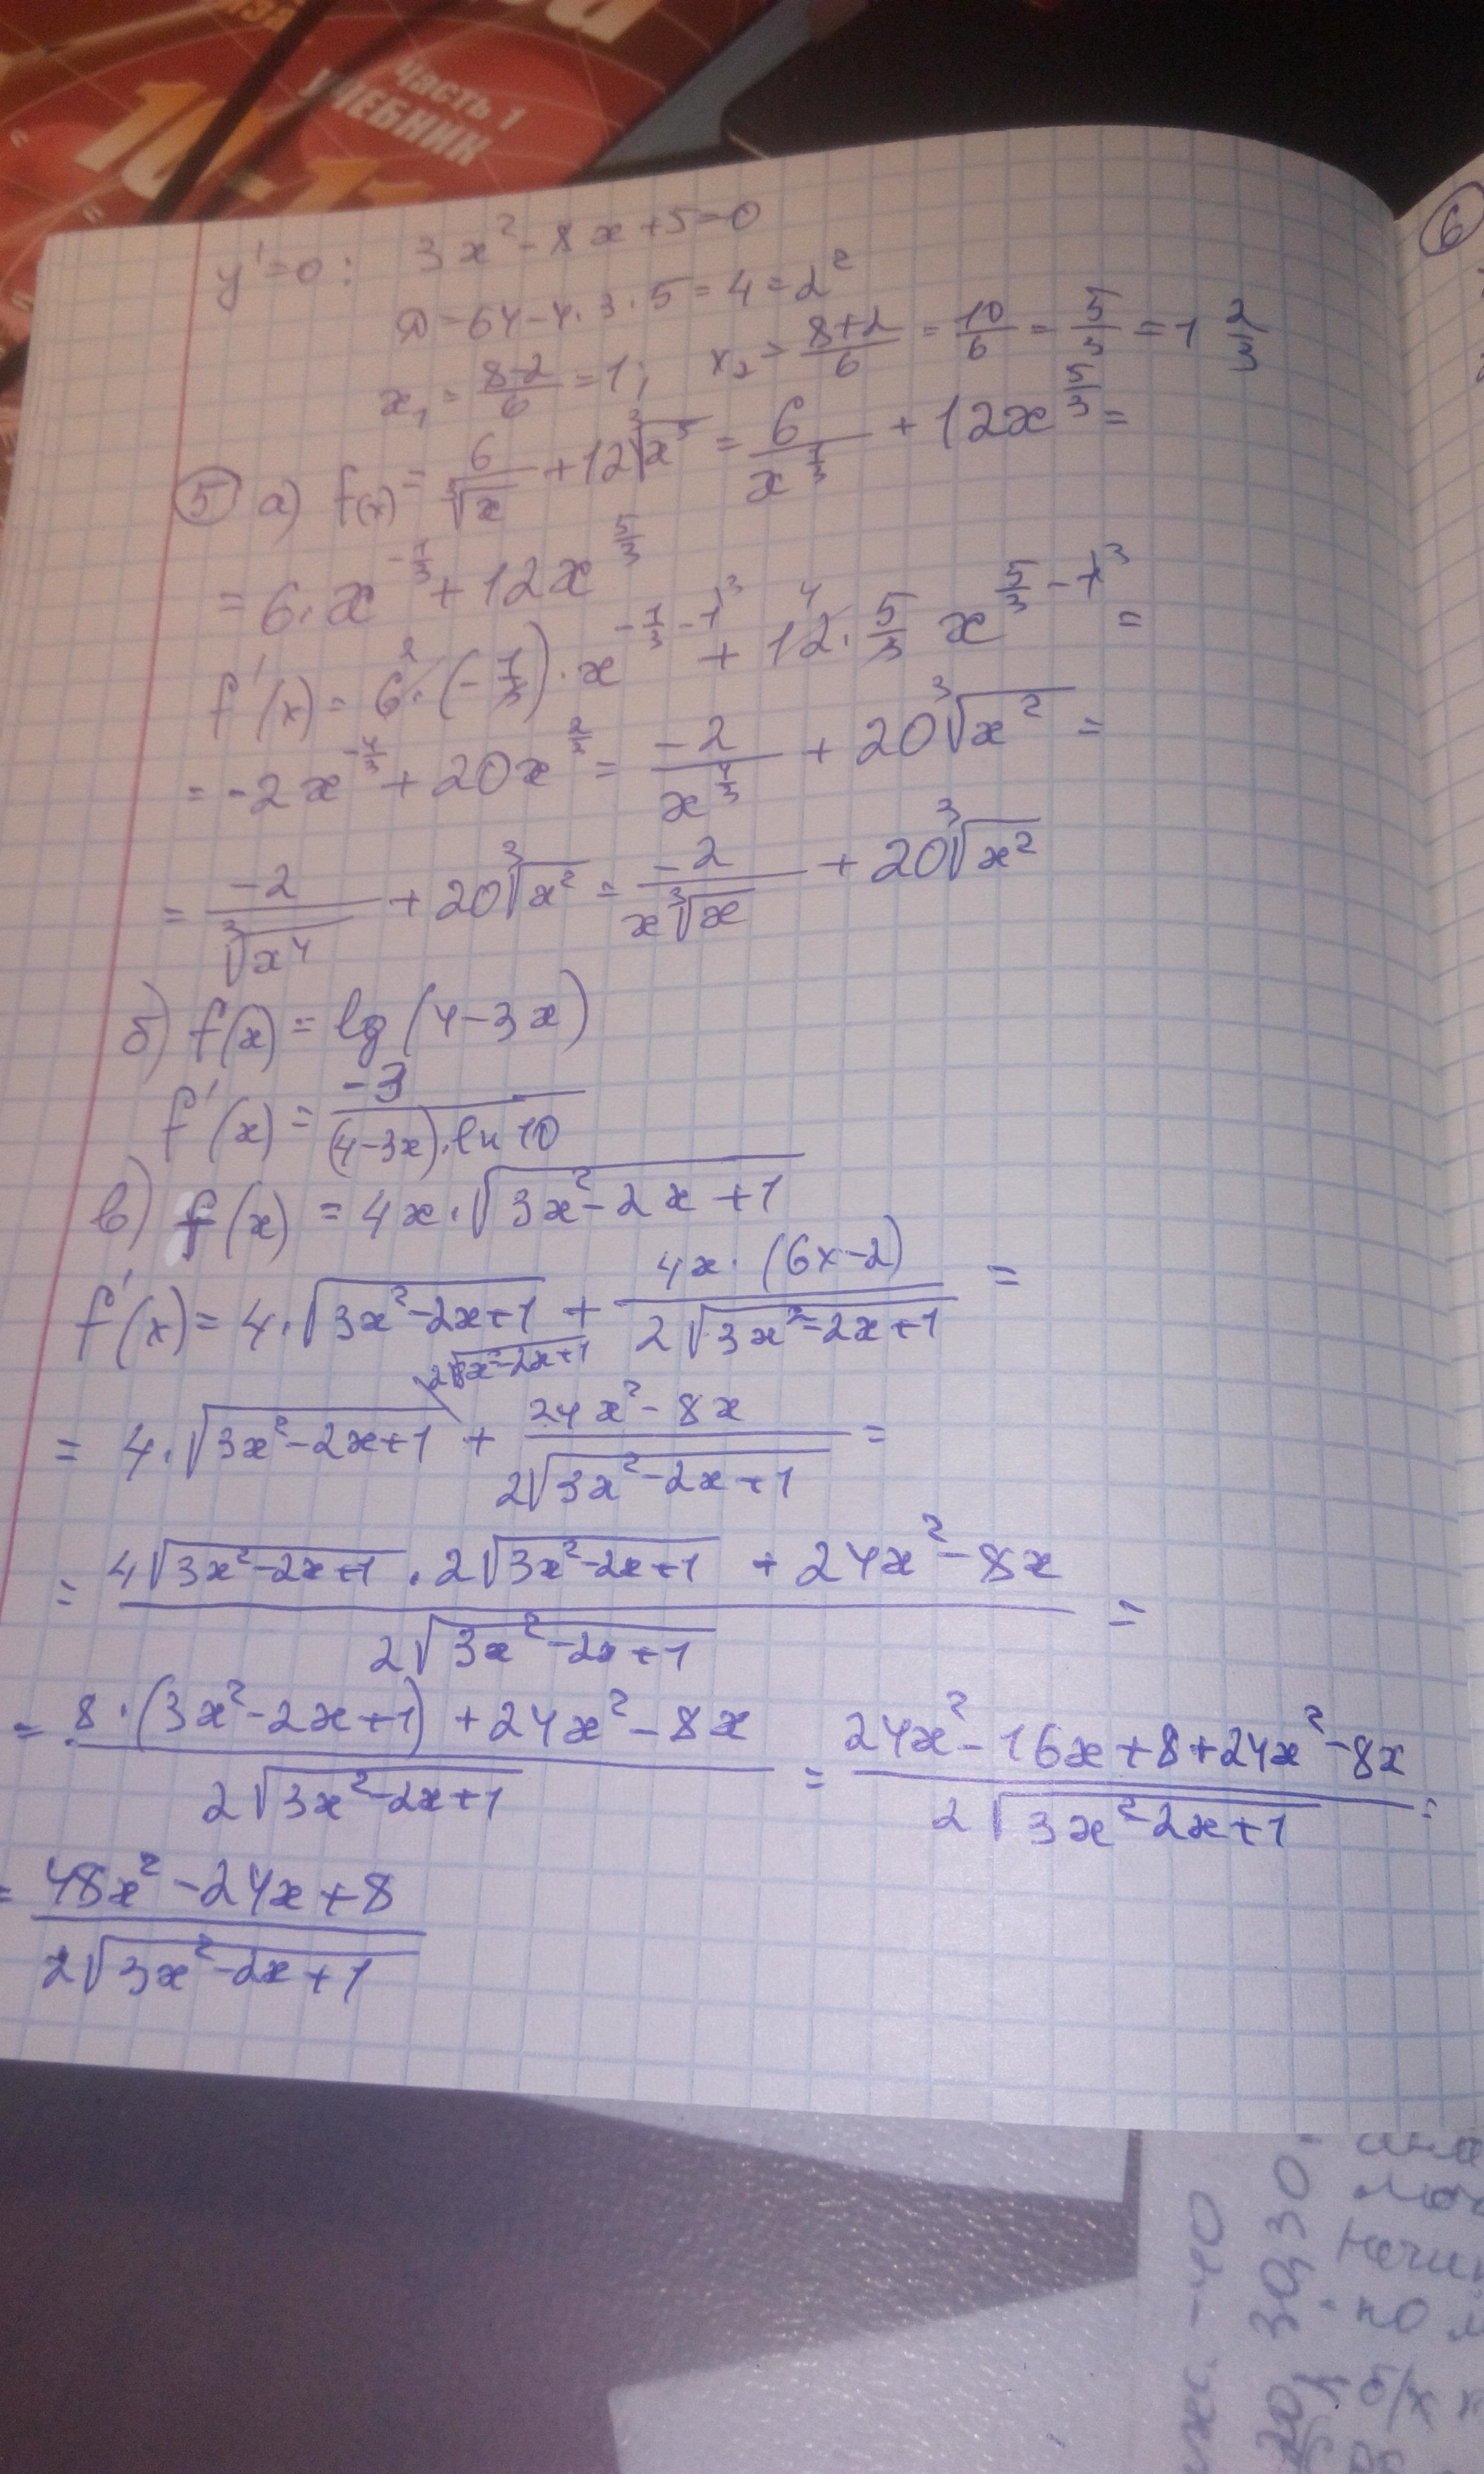 часть 1
УЧЕБНИК
10-11
6
y'=0: 3x²-8x+5=0
D=64-4·3·5=4=2²
x₁=\frac{8-2}{6}=1; x₂=\frac{8+2}{6}=\frac{10}{6}=\frac{5}{3}=1\frac{2}{3}
5 а) f(x)=\frac{6}{\sqrt[3]{x}}+12\sqrt[3]{x^5}=\frac{6}{x^{\frac{1}{3}}}+12x^{\frac{5}{3}}=
=6·x^{-\frac{1}{3}}+12x^{\frac{5}{3}}
f'(x)=6·(-\frac{1}{3})·x^{-\frac{1}{3}-1}+12·\frac{5}{3}x^{\frac{5}{3}-1}=
=-2x^{-\frac{4}{3}}+20x^{\frac{2}{3}}=\frac{-2}{x^{\frac{4}{3}}}+20\sqrt[3]{x²}=
=\frac{-2}{\sqrt[3]{x^4}}+20\sqrt[3]{x²}=\frac{-2}{x\sqrt[3]{x}}+20\sqrt[3]{x²}
б) f(x)=lg(4-3x)
f'(x)=\frac{-3}{(4-3x)·ln10}
в) f(x)=4x·\sqrt{3x²-2x+1}
f'(x)=4·\sqrt{3x²-2x+1}+\frac{4x·(6x-2)}{2\sqrt{3x²-2x+1}}=
2\sqrt{3x²-2x+1}
=4·\sqrt{3x²-2x+1}+\frac{24x²-8x}{2\sqrt{3x²-2x+1}}=
=\frac{4\sqrt{3x²-2x+1}·2\sqrt{3x²-2x+1}+24x²-8x}{2\sqrt{3x²-2x+1}}=
=\frac{8·(3x²-2x+1)+24x²-8x}{2\sqrt{3x²-2x+1}}=\frac{24x²-16x+8+24x²-8x}{2\sqrt{3x²-2x+1}}=
=\frac{48x²-24x+8}{2\sqrt{3x²-2x+1}}